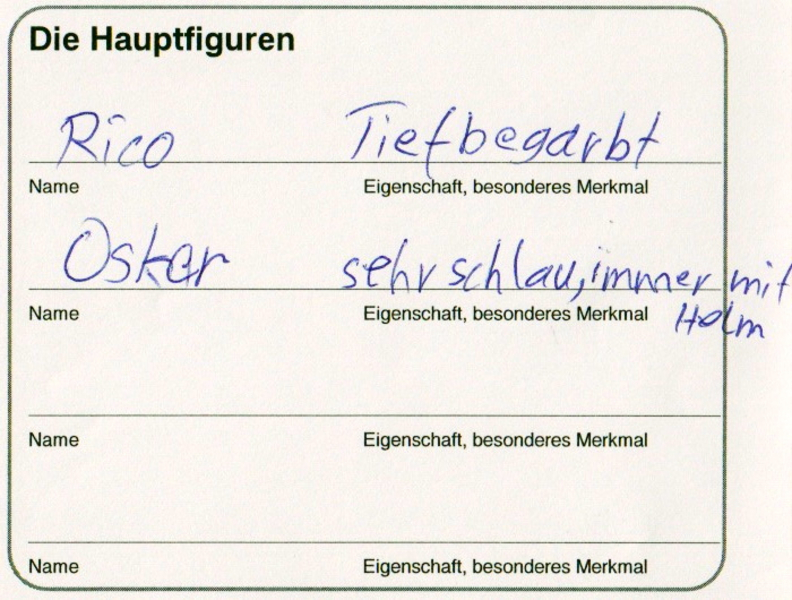 Die Hauptfiguren
Rico Tiefbegarbt
Name Eigenschaft, besonderes Merkmal
Oskar sehr schlau, immer mit
Holm
Name Eigenschaft, besonderes Merkmal
Name Eigenschaft, besonderes Merkmal
Name Eigenschaft, besonderes Merkmal